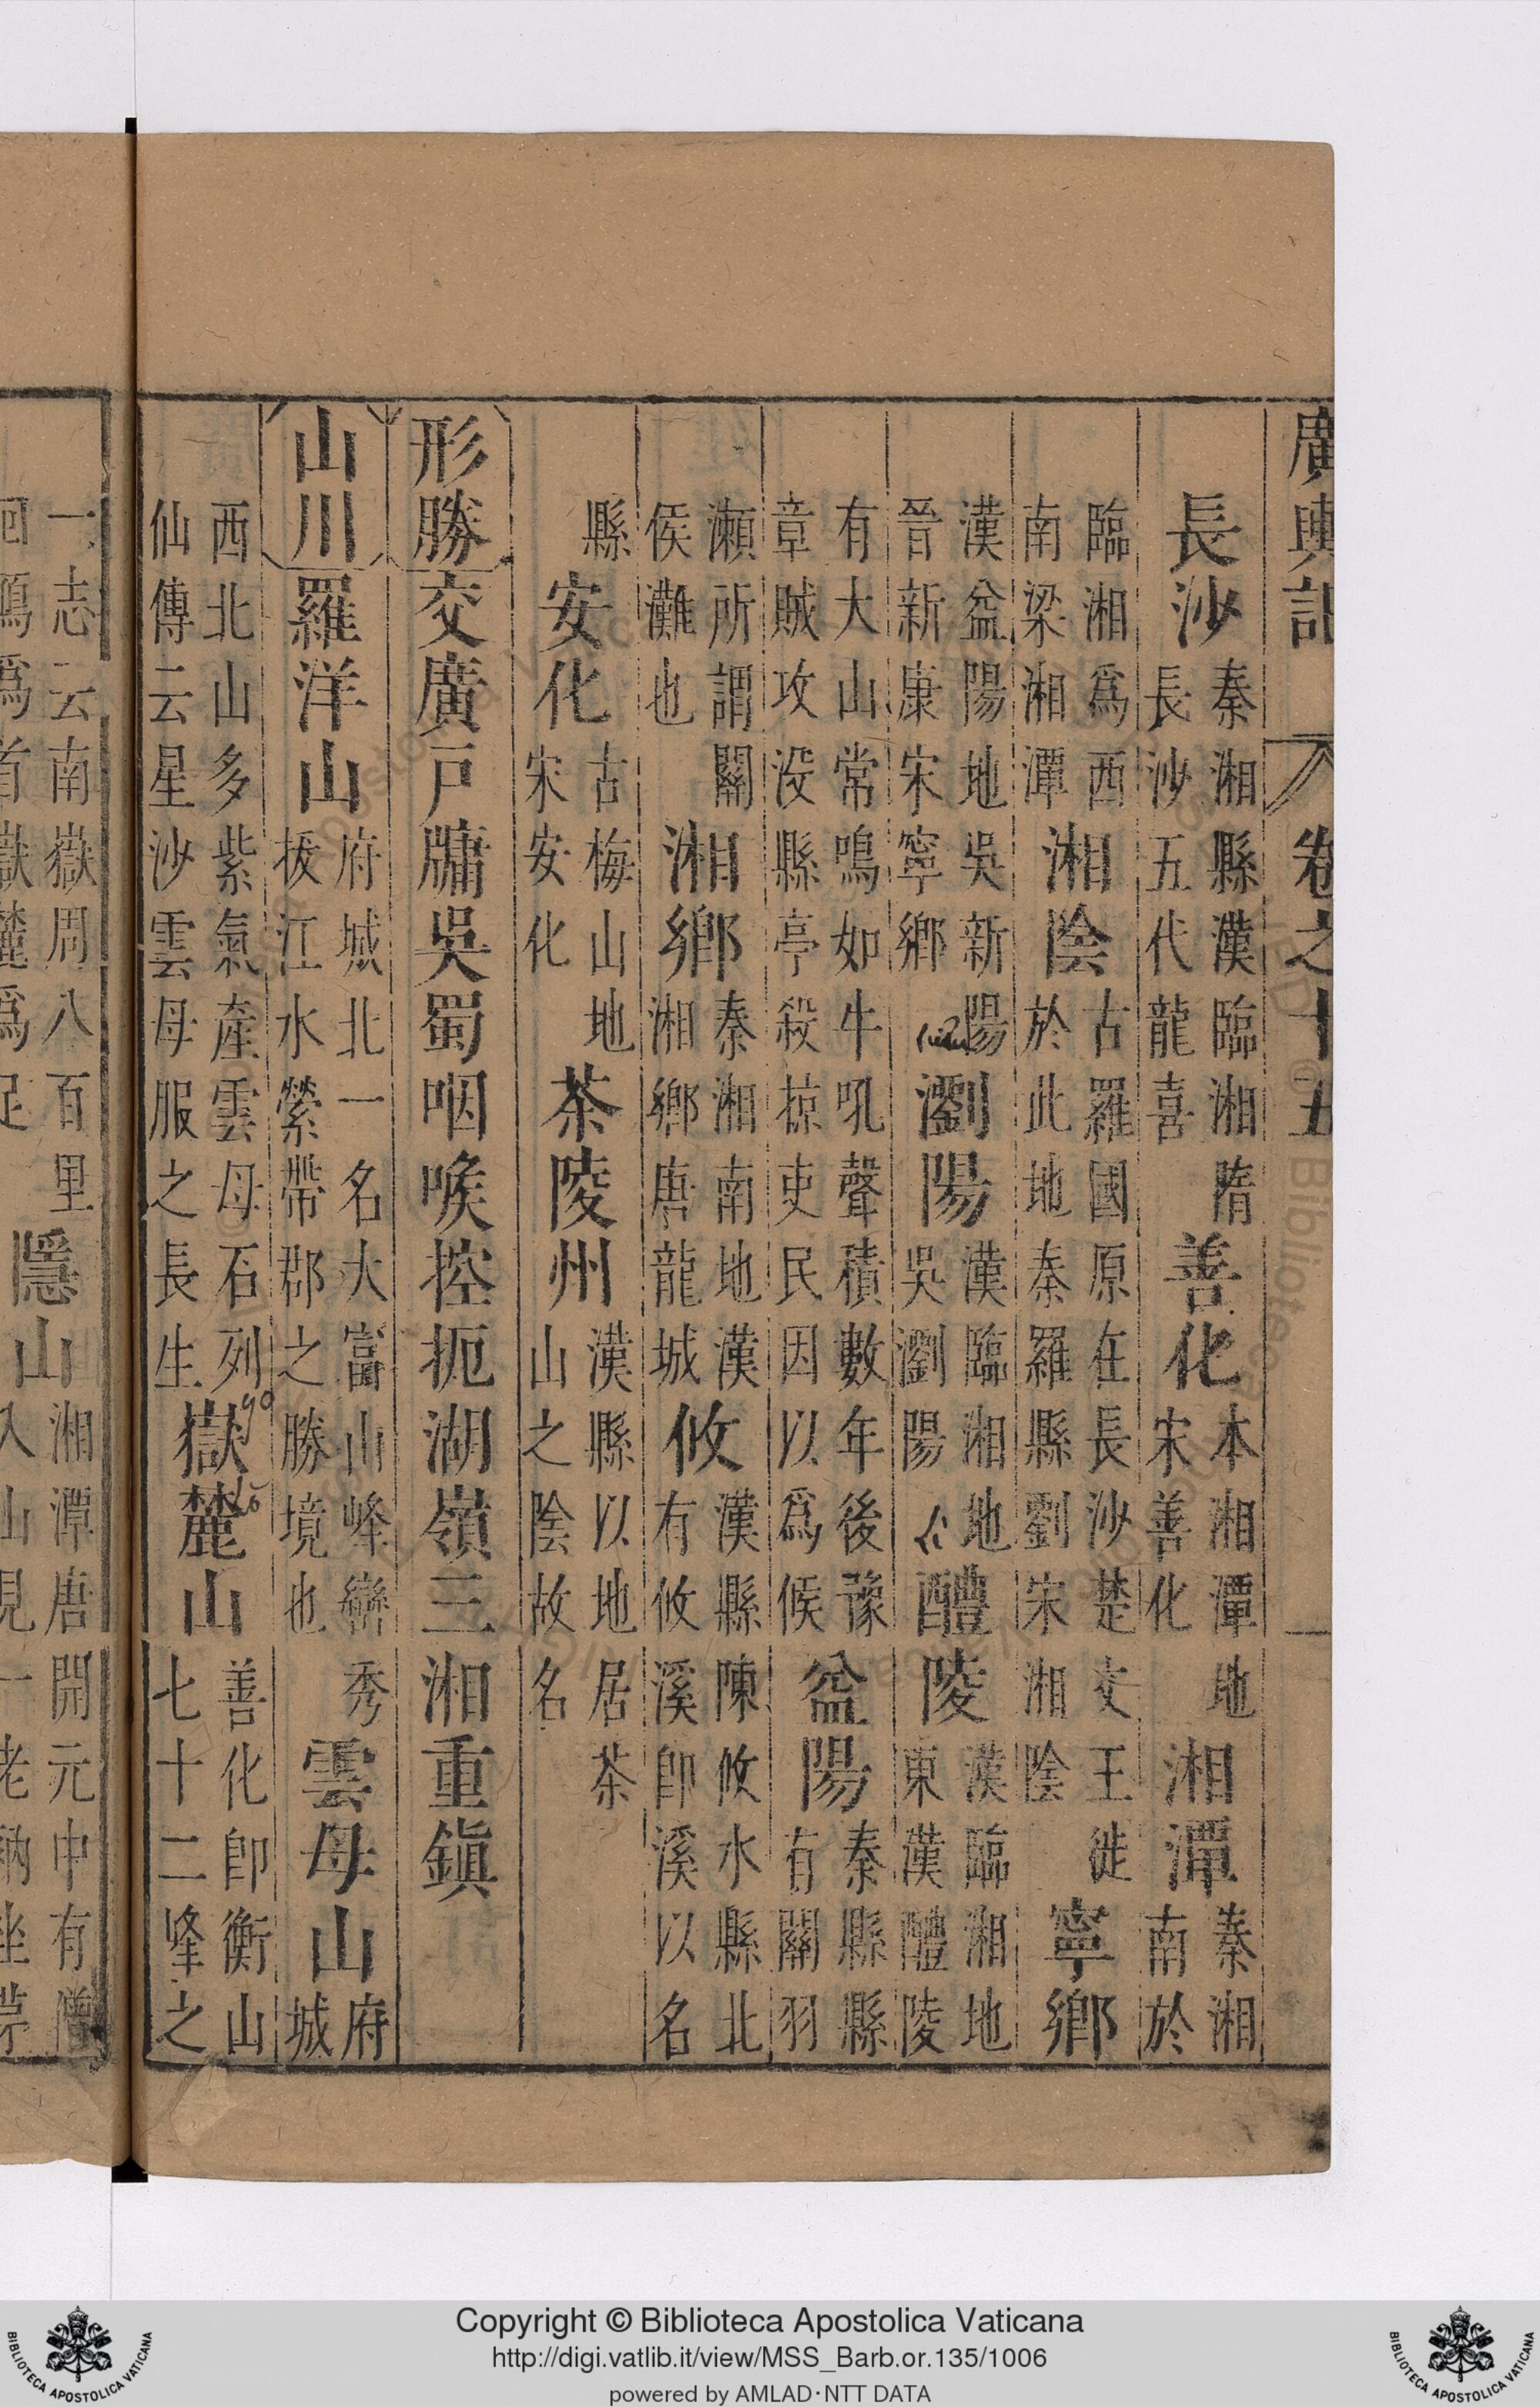 廣輿記 卷之十五
長沙 秦湘縣漢臨湘隋長沙五代龍喜 善化 本湘潭地宋善化 湘潭 秦湘南於
臨湘爲西南梁湘潭 湘陰 古羅國原在長沙楚文王徙於此地秦羅縣劉宋湘陰 寧鄉
漢益陽地吳新陽晉新康宋寧鄉 瀏陽 漢臨湘地吳瀏陽 醴陵 漢臨湘地東漢醴陵
有大山常鳴如牛吼聲積數年後豫章賊攻没縣亭殺掠吏民因以爲候 益陽 秦縣縣有關羽
瀨所謂關侯灘也 湘鄉 秦湘南地漢湘鄉唐龍城 攸 漢縣陳攸水縣北有攸溪卽溪以名
縣 安化 古梅山地宋安化 茶陵州 漢縣以地居茶山之陰故名
形勝 交廣戸牖吳蜀咽喉控扼湖嶺三湘重鎭
山川 羅洋山 府城北一名大富山峰巒秀拔江水縈帶郡之勝境也 雲母山 府城
西北山多紫氣產雲母石列仙傳云星沙雲母服之長生 嶽麓山 善化卽衡山七十二峰之
一志云南嶽周八百里回鴈爲首嶽麓爲足 隱山 湘潭唐開元中有僧入山見一老衲坐茅
Copyright © Biblioteca Apostolica Vaticana
http://digi.vatlib.it/view/MSS_Barb.or.135/1006
powered by AMLAD·NTT DATA
BIBLIOTECA APOSTOLICA VATICANA
BIBLIOTECA APOSTOLICA VATICANA